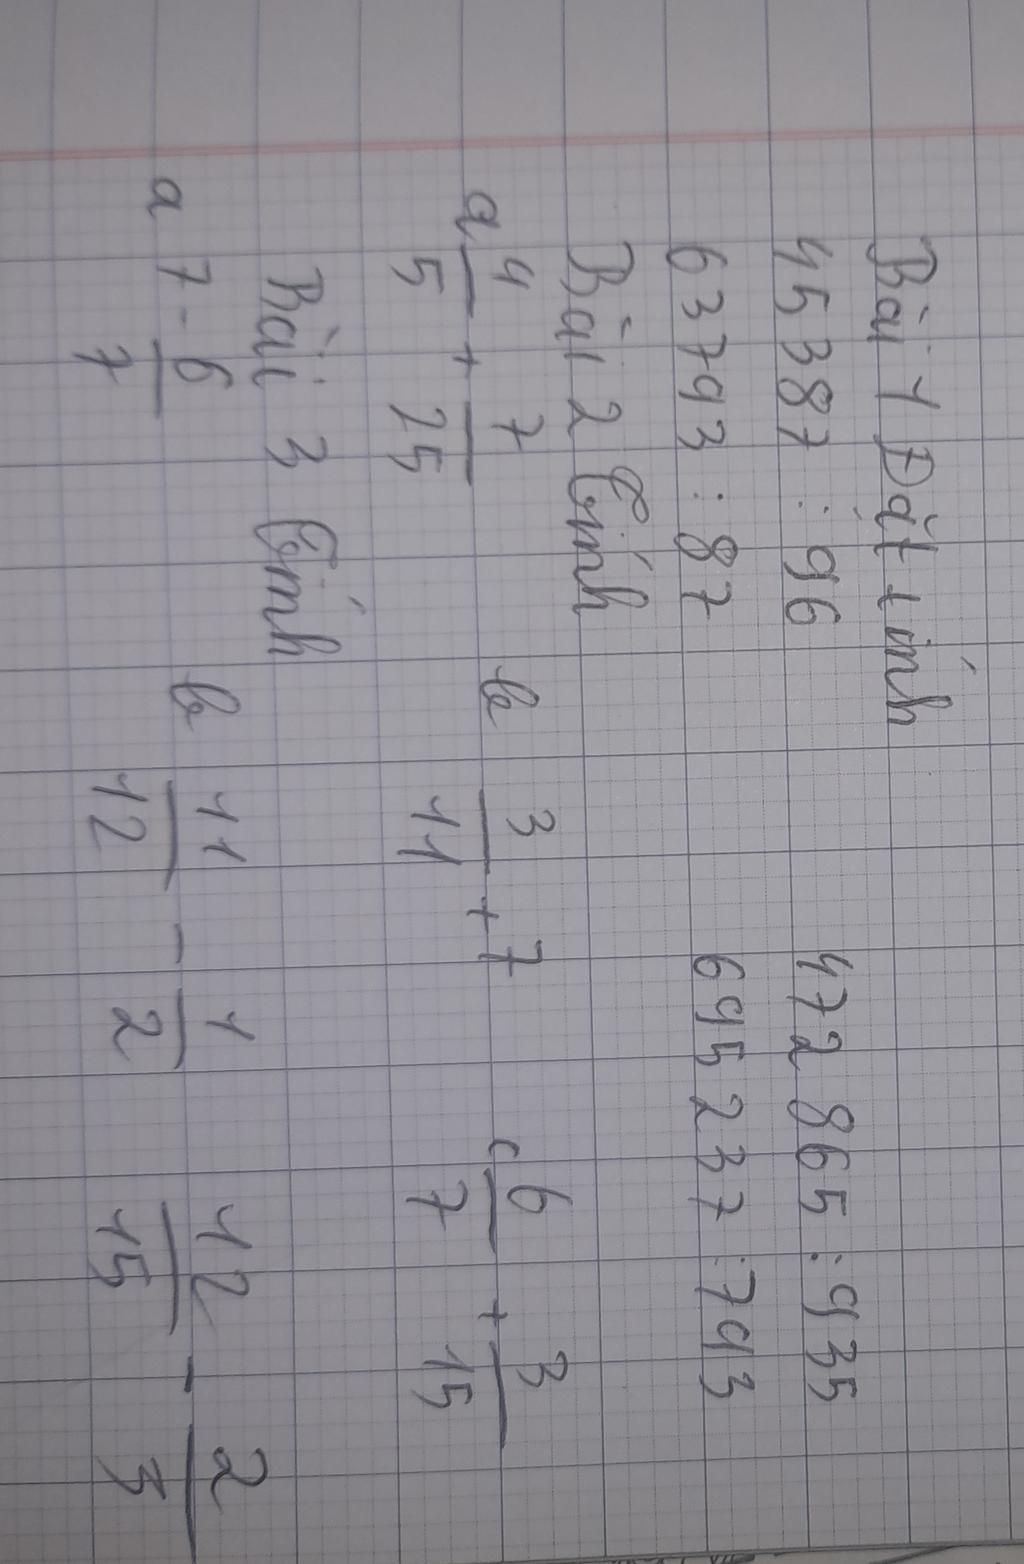 Bài 1 Đặt tính
45 387 : 96 472 865 : 935
63793 : 87 695 237 : 793
Bài 2 Tính
a 4/5 + 7/25 b 3/11 + 7 c 6/7 + 3/15
Bài 3 Tính
a 7 - 6/7 b 11/12 - 1/2 12/15 - 2/3